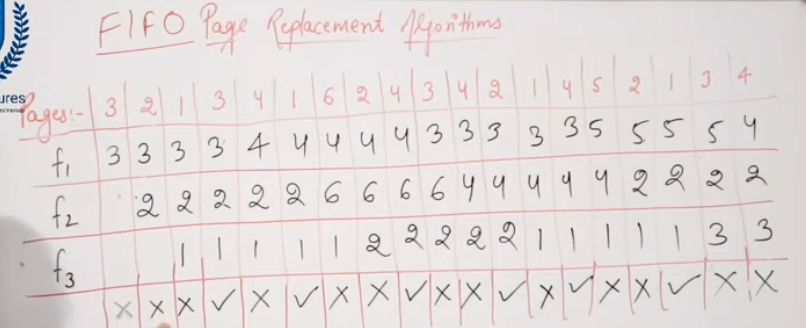 FIFO Page Replacement Algorithms
ures
Pages:- 3 2 1 3 4 1 6 2 4 3 4 2 1 4 5 2 1 3 4
f1 3 3 3 3 4 4 4 4 4 3 3 3 3 3 5 5 5 5 4
f2 2 2 2 2 2 6 6 6 6 4 4 4 4 4 2 2 2 2
f3 1 1 1 1 1 2 2 2 2 2 1 1 1 1 1 3 3
x x x ✓ x ✓ x x ✓ x x ✓ x ✓ x x ✓ x x